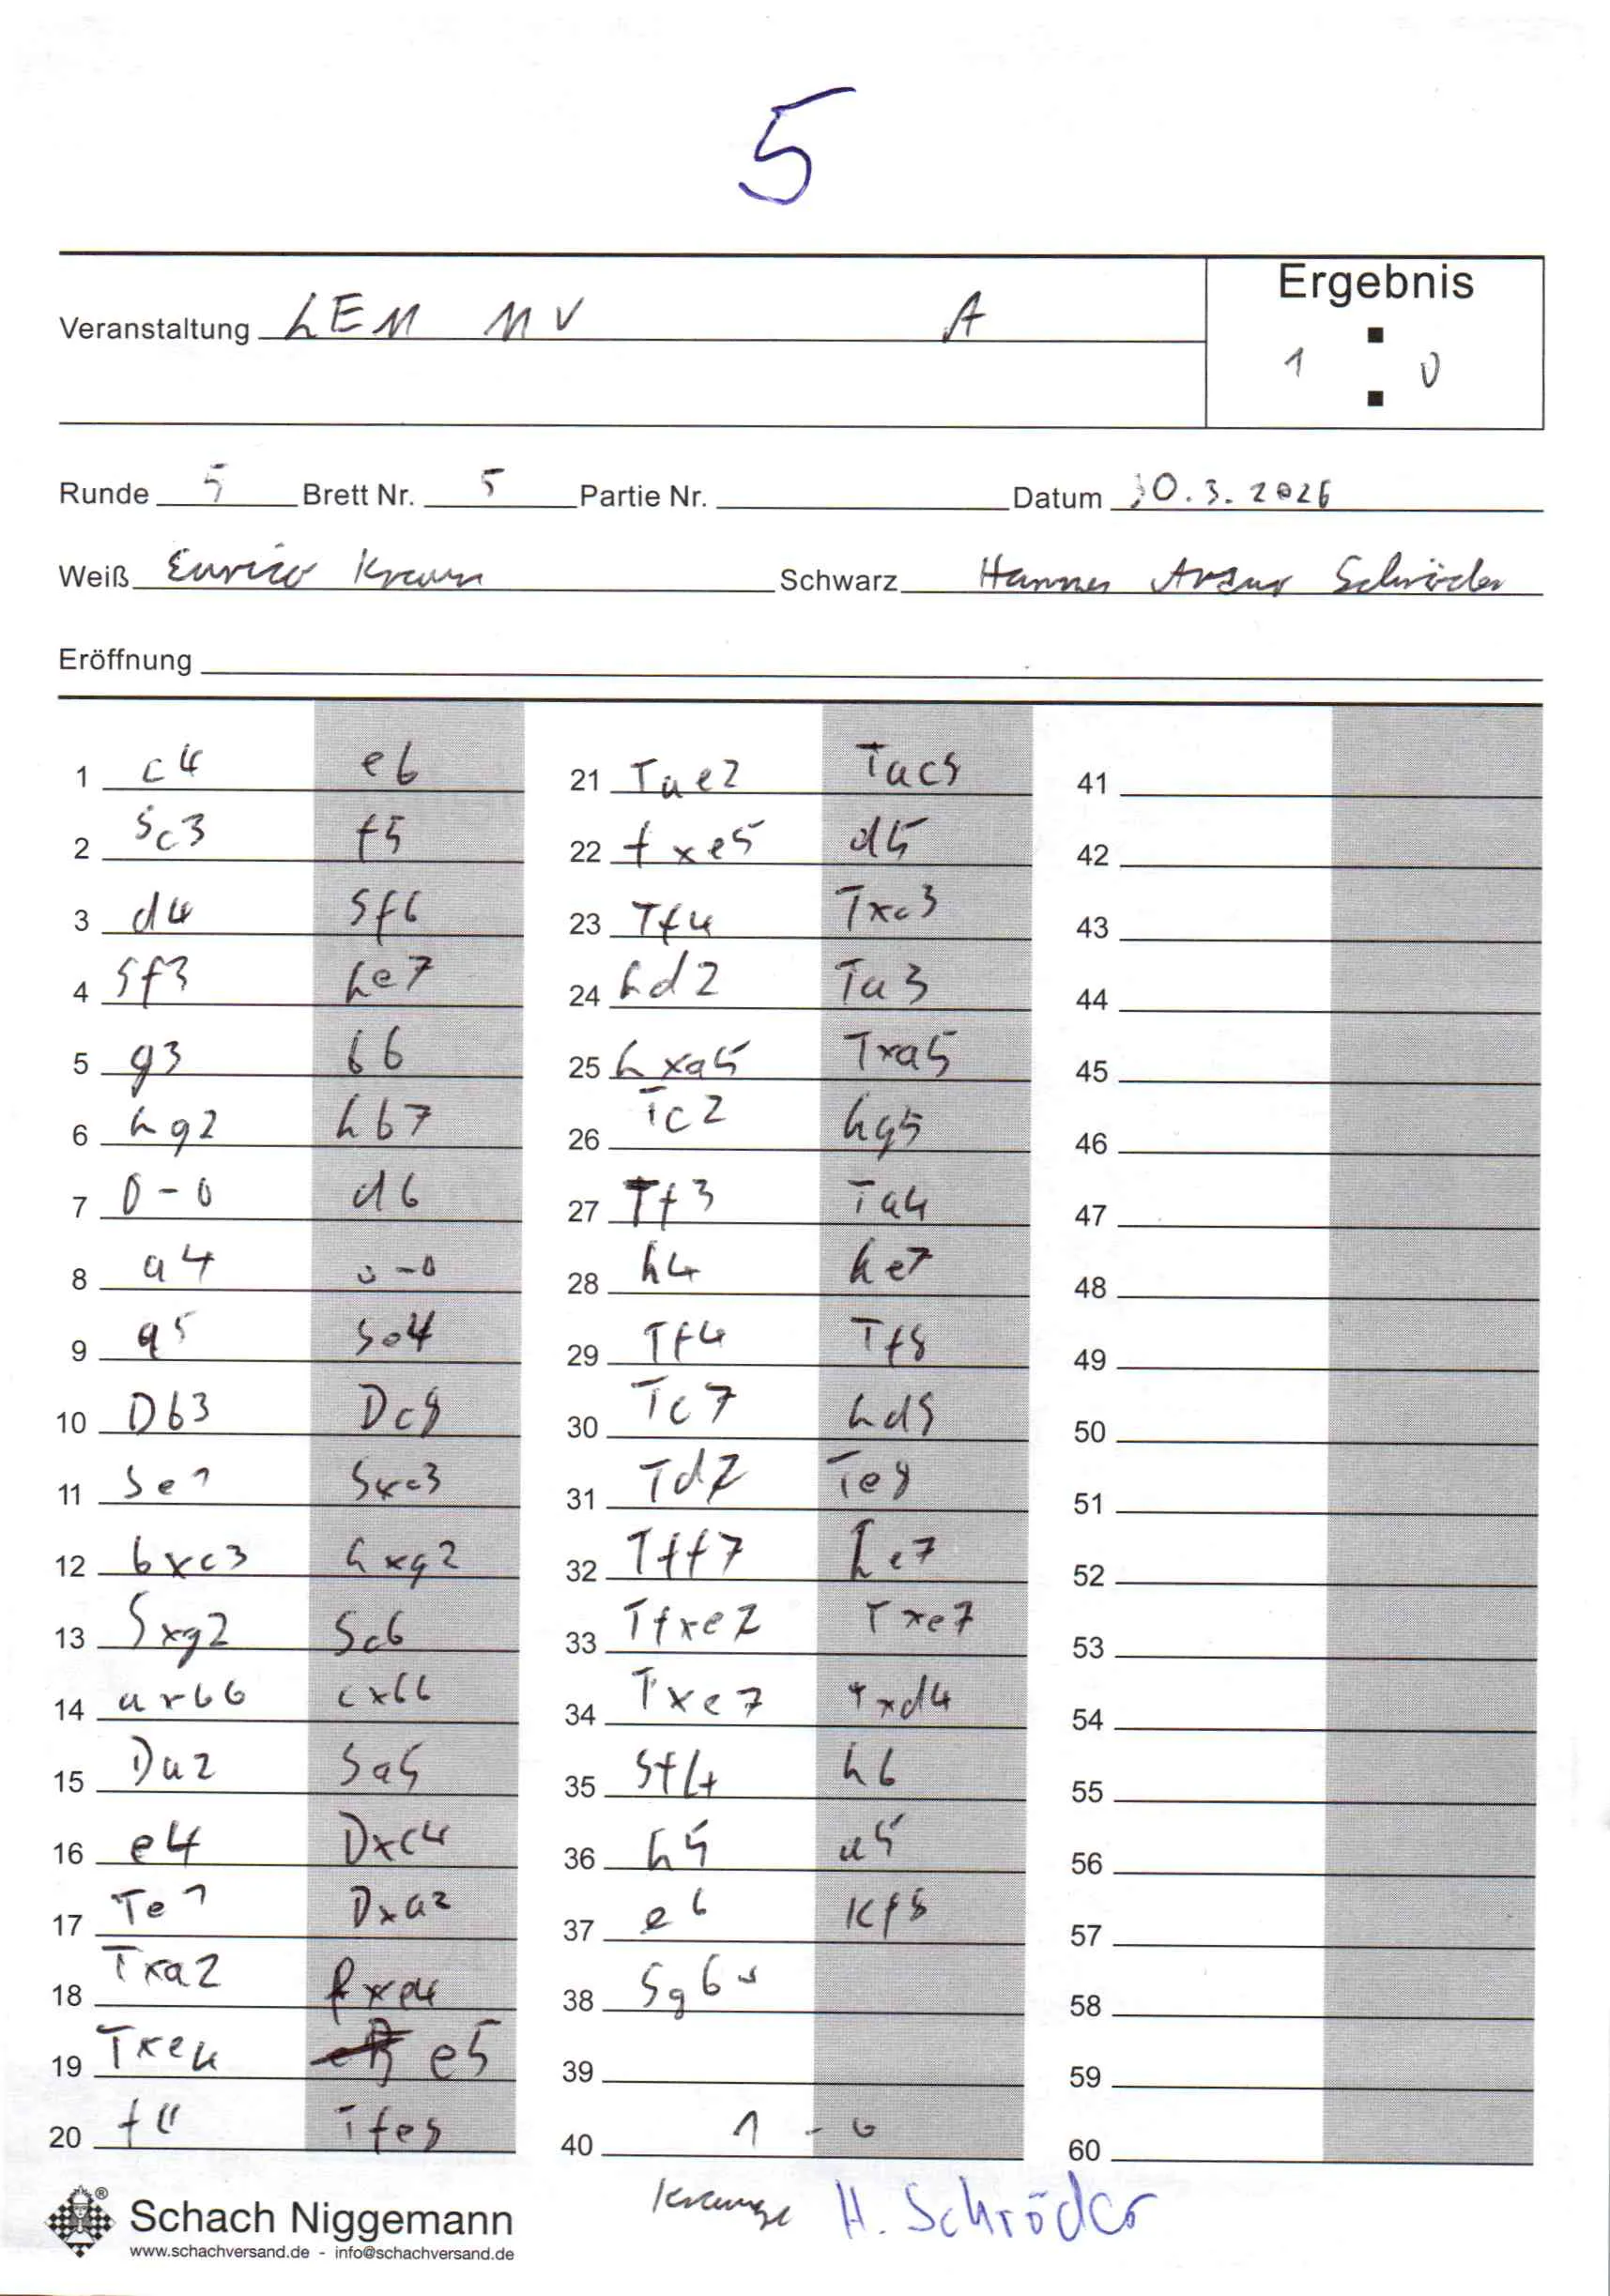 5
Veranstaltung LEM MV A
Ergebnis
1 : 0
Runde 5 Brett Nr. 5 Partie Nr. Datum 30.3.2026
Weiß Enrico Schwarz Hannes Schröder
Eröffnung
1 c4 e6
2 Sc3 f5
3 d4 Sf6
4 Sf3 Le7
5 g3 b6
6 Lg2 Lb7
7 0-0 d6
8 a4 0-0
9 a5 Se4
10 Db3 Dc8
11 Se1 Sxc3
12 bxc3 Lxg2
13 Sxg2 Sc6
14 axb6 cxb6
15 Da2 Sa5
16 e4 Dxc4
17 Te1 Dxa2
18 Txa2 fxe4
19 Txe4 e5
20 f4 Tfe8
21 Tae2 Tac8
22 fxe5 d5
23 Tf4 Txc3
24 Ld2 Ta3
25 Lxa5 Txa5
26 Tc2 Lg5
27 Tf3 Ta4
28 h4 Le7
29 Tf4 Tf8
30 Tc7 Ld8
31 Td7 Te8
32 Tff7 Le7
33 Tfxe7 Txe7
34 Txe7 Txd4
35 Sf4 h6
36 h5 a5
37 e6 Kf8
38 Sg6+
39
40 1-0
41
42
43
44
45
46
47
48
49
50
51
52
53
54
55
56
57
58
59
60
Krause H. Schröder
Schach Niggemann
www.schachversand.de - info@schachversand.de